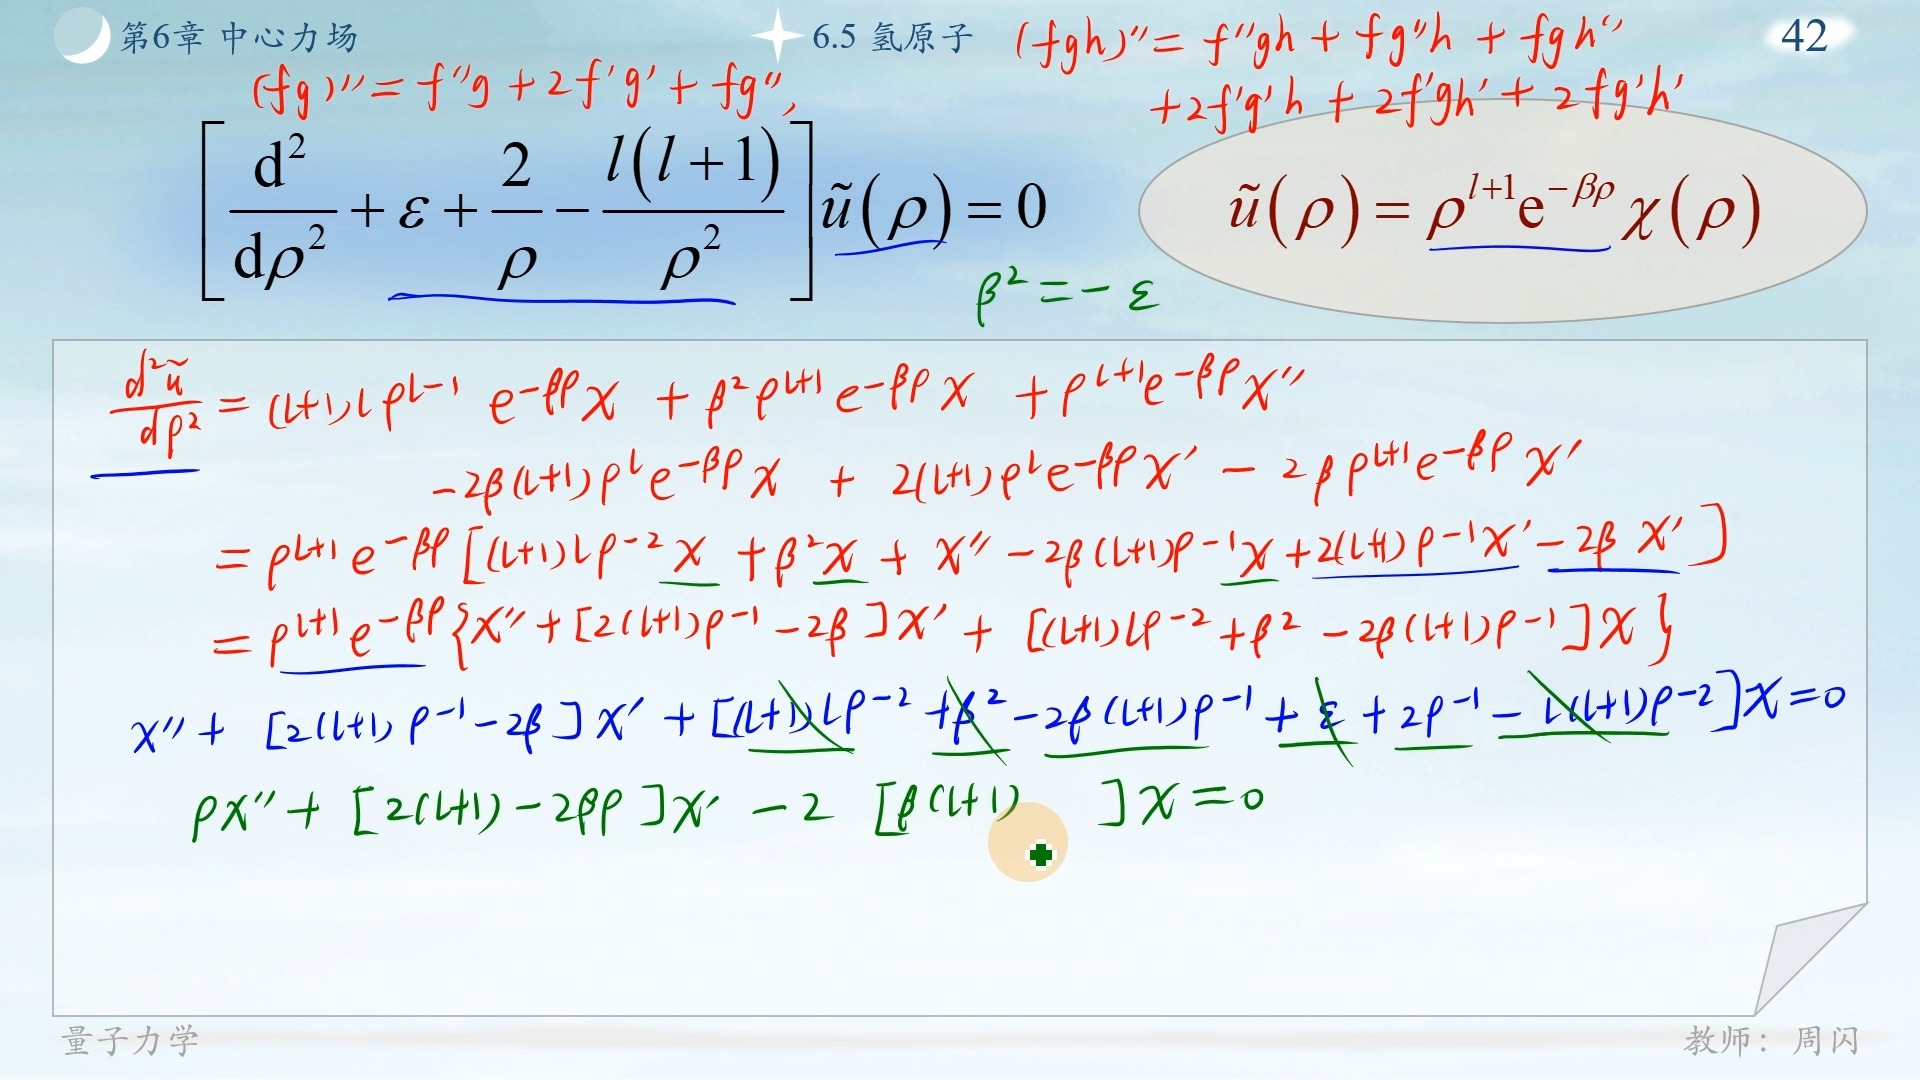 第6章 中心力场
6.5 氢原子
42
(fgh)″ = f″gh + fg″h + fgh″
+ 2f′g′h + 2f′gh′ + 2fg′h′
(fg)″ = f″g + 2f′g′ + fg″,
[d²/dρ² + ε + 2/ρ − l(l+1)/ρ²] ũ(ρ) = 0
ũ(ρ) = ρ^{l+1} e^{−βρ} χ(ρ)
β² = − ε
d²ũ/dρ² = (l+1)lρ^{l−1} e^{−βρ}χ + β²ρ^{l+1}e^{−βρ}χ + ρ^{l+1}e^{−βρ}χ″
−2β(l+1)ρ^l e^{−βρ}χ + 2(l+1)ρ^l e^{−βρ}χ′ − 2βρ^{l+1}e^{−βρ}χ′
= ρ^{l+1}e^{−βρ}[(l+1)lρ^{−2}χ + β²χ + χ″ − 2β(l+1)ρ^{−1}χ + 2(l+1)ρ^{−1}χ′ − 2βχ′]
= ρ^{l+1}e^{−βρ}{χ″ + [2(l+1)ρ^{−1} − 2β]χ′ + [(l+1)lρ^{−2} + β² − 2β(l+1)ρ^{−1}]χ}
χ″ + [2(l+1)ρ^{−1} − 2β]χ′ + [(l+1)lρ^{−2} + β² − 2β(l+1)ρ^{−1} + ε + 2ρ^{−1} − l(l+1)ρ^{−2}]χ = 0
ρχ″ + [2(l+1) − 2βρ]χ′ − 2 [β(l+1) ]χ = 0
量子力学
教师：周闪